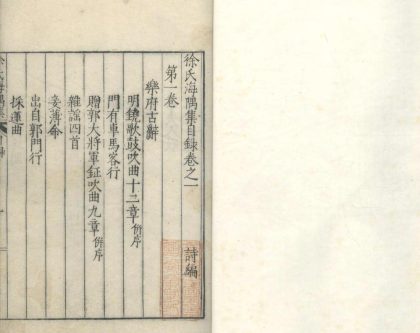 徐氏海隅集目錄卷之一 詩編
第一卷
樂府古辭
明鐃歌鼓吹曲十二章併序
門有車馬客行
贈郭大將軍鉦吹曲九章併序
雜謡四首
妾薄命
出自郭門行
採蓮曲